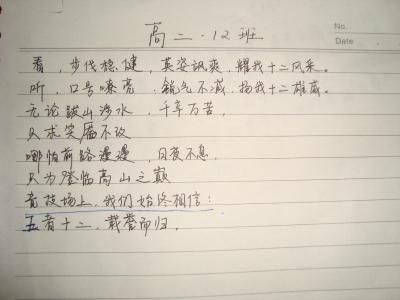 高二·12班
No.
Date
看，步伐稳健，英姿飒爽，耀我十二风采。
听，口号嘹亮，锐气不减，扬我十二雄威。
无论跋山涉水，千辛万苦，
只求笑靥不改
哪怕前路漫漫，日夜不息，
只为登临高山之巅
竞技场上，我们始终相信：
五者十二，载誉而归。